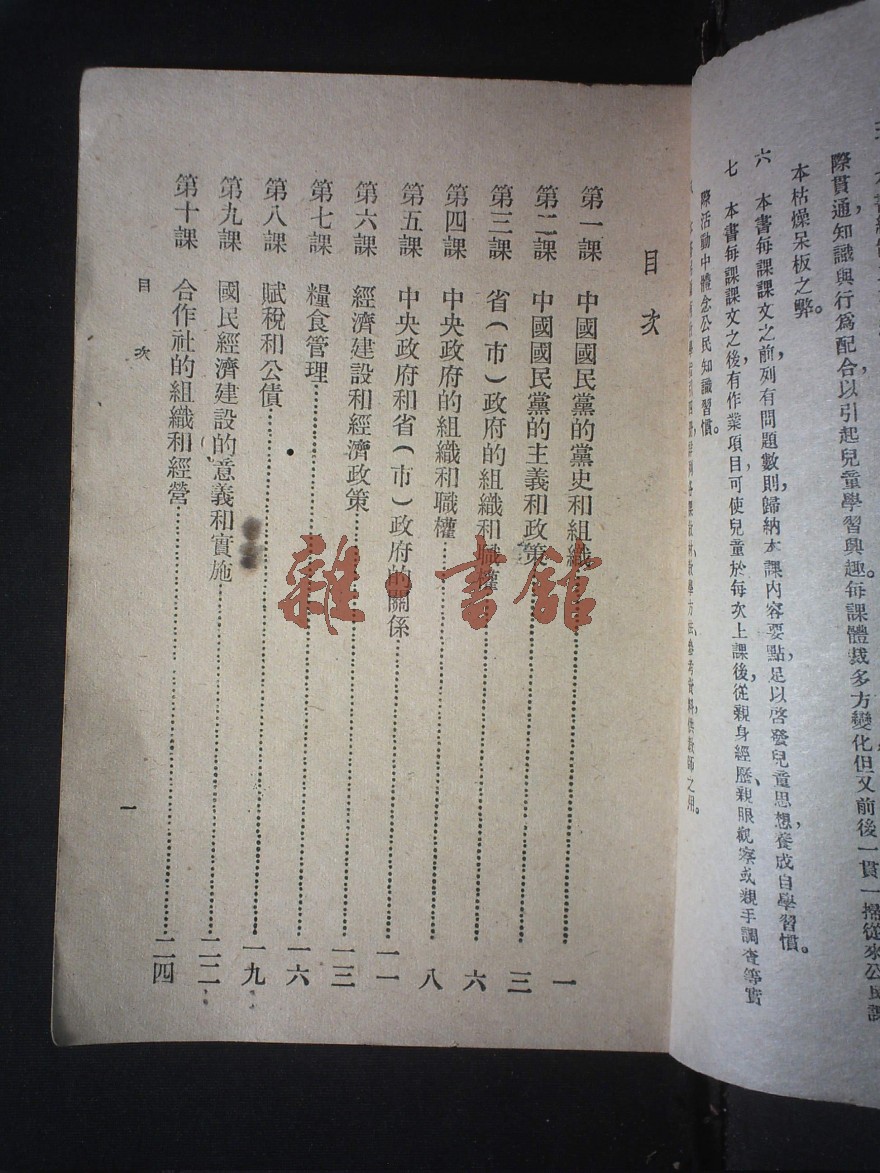 際貫通知識與行爲配合,以引起兒童學習興趣。每課體裁多方變化,但又前後一貫,一掃從來公民課
本枯燥呆板之弊。
六 本書每課課文之前,列有問題數則,歸納本課內容要點,足以啓發兒童思想,養成自學習慣。
七 本書每課課文之後,有作業項目,可使兒童於每次上課後,從親身經歷、親眼觀察或親手調查等實
際活動中體念公民知識習慣。
目次
第一課 中國國民黨的黨史和組織……一
第二課 中國國民黨的主義和政策……三
第三課 省(市)政府的組織和職權……六
第四課 中央政府的組織和職權……八
第五課 中央政府和省(市)政府的關係……一一
第六課 經濟建設和經濟政策……一三
第七課 糧食管理……一六
第八課 賦稅和公債……一九
第九課 國民經濟建設的意義和實施……二二
第十課 合作社的組織和經營……二四
目次 一
雜·書館